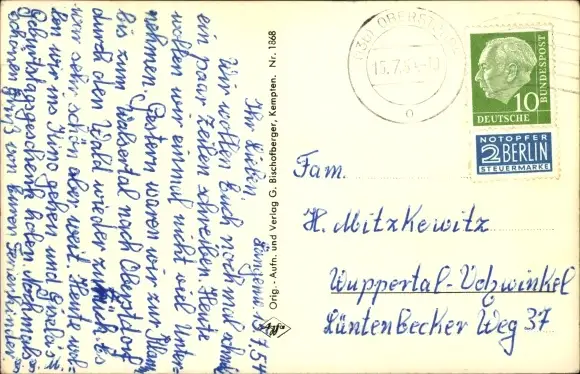 Längenw. 13.7.54
Ihr Lieben!
Wir wollen Euch nochmal schnell
ein paar Zeilen schreiben. Heute
wollen wir einmal nicht viel Unter-
nehmen. Gestern waren wir zur
bis zum Walsertal nach Oberstdorf
durch den Wald wieder zurück. Es
war sehr schön aber weit. Heute wol-
len wir ins Kino gehen und Gisela's
Geburtstagsgeschenk holen. Noch
schönen Gruß von Euren Ferienkindern
Orig.- Aufn. und Verlag G. Bischofberger, Kempten. Nr. 1868
Agfa
(13b) OBERSTDORF
15.7.54
DEUTSCHE
BUNDESPOST
10
NOTOPFER
2 BERLIN
STEUERMARKE
Fam.
H. Mitzkewitz
Wuppertal-Vohwinkel
Lüntenbecker Weg 37